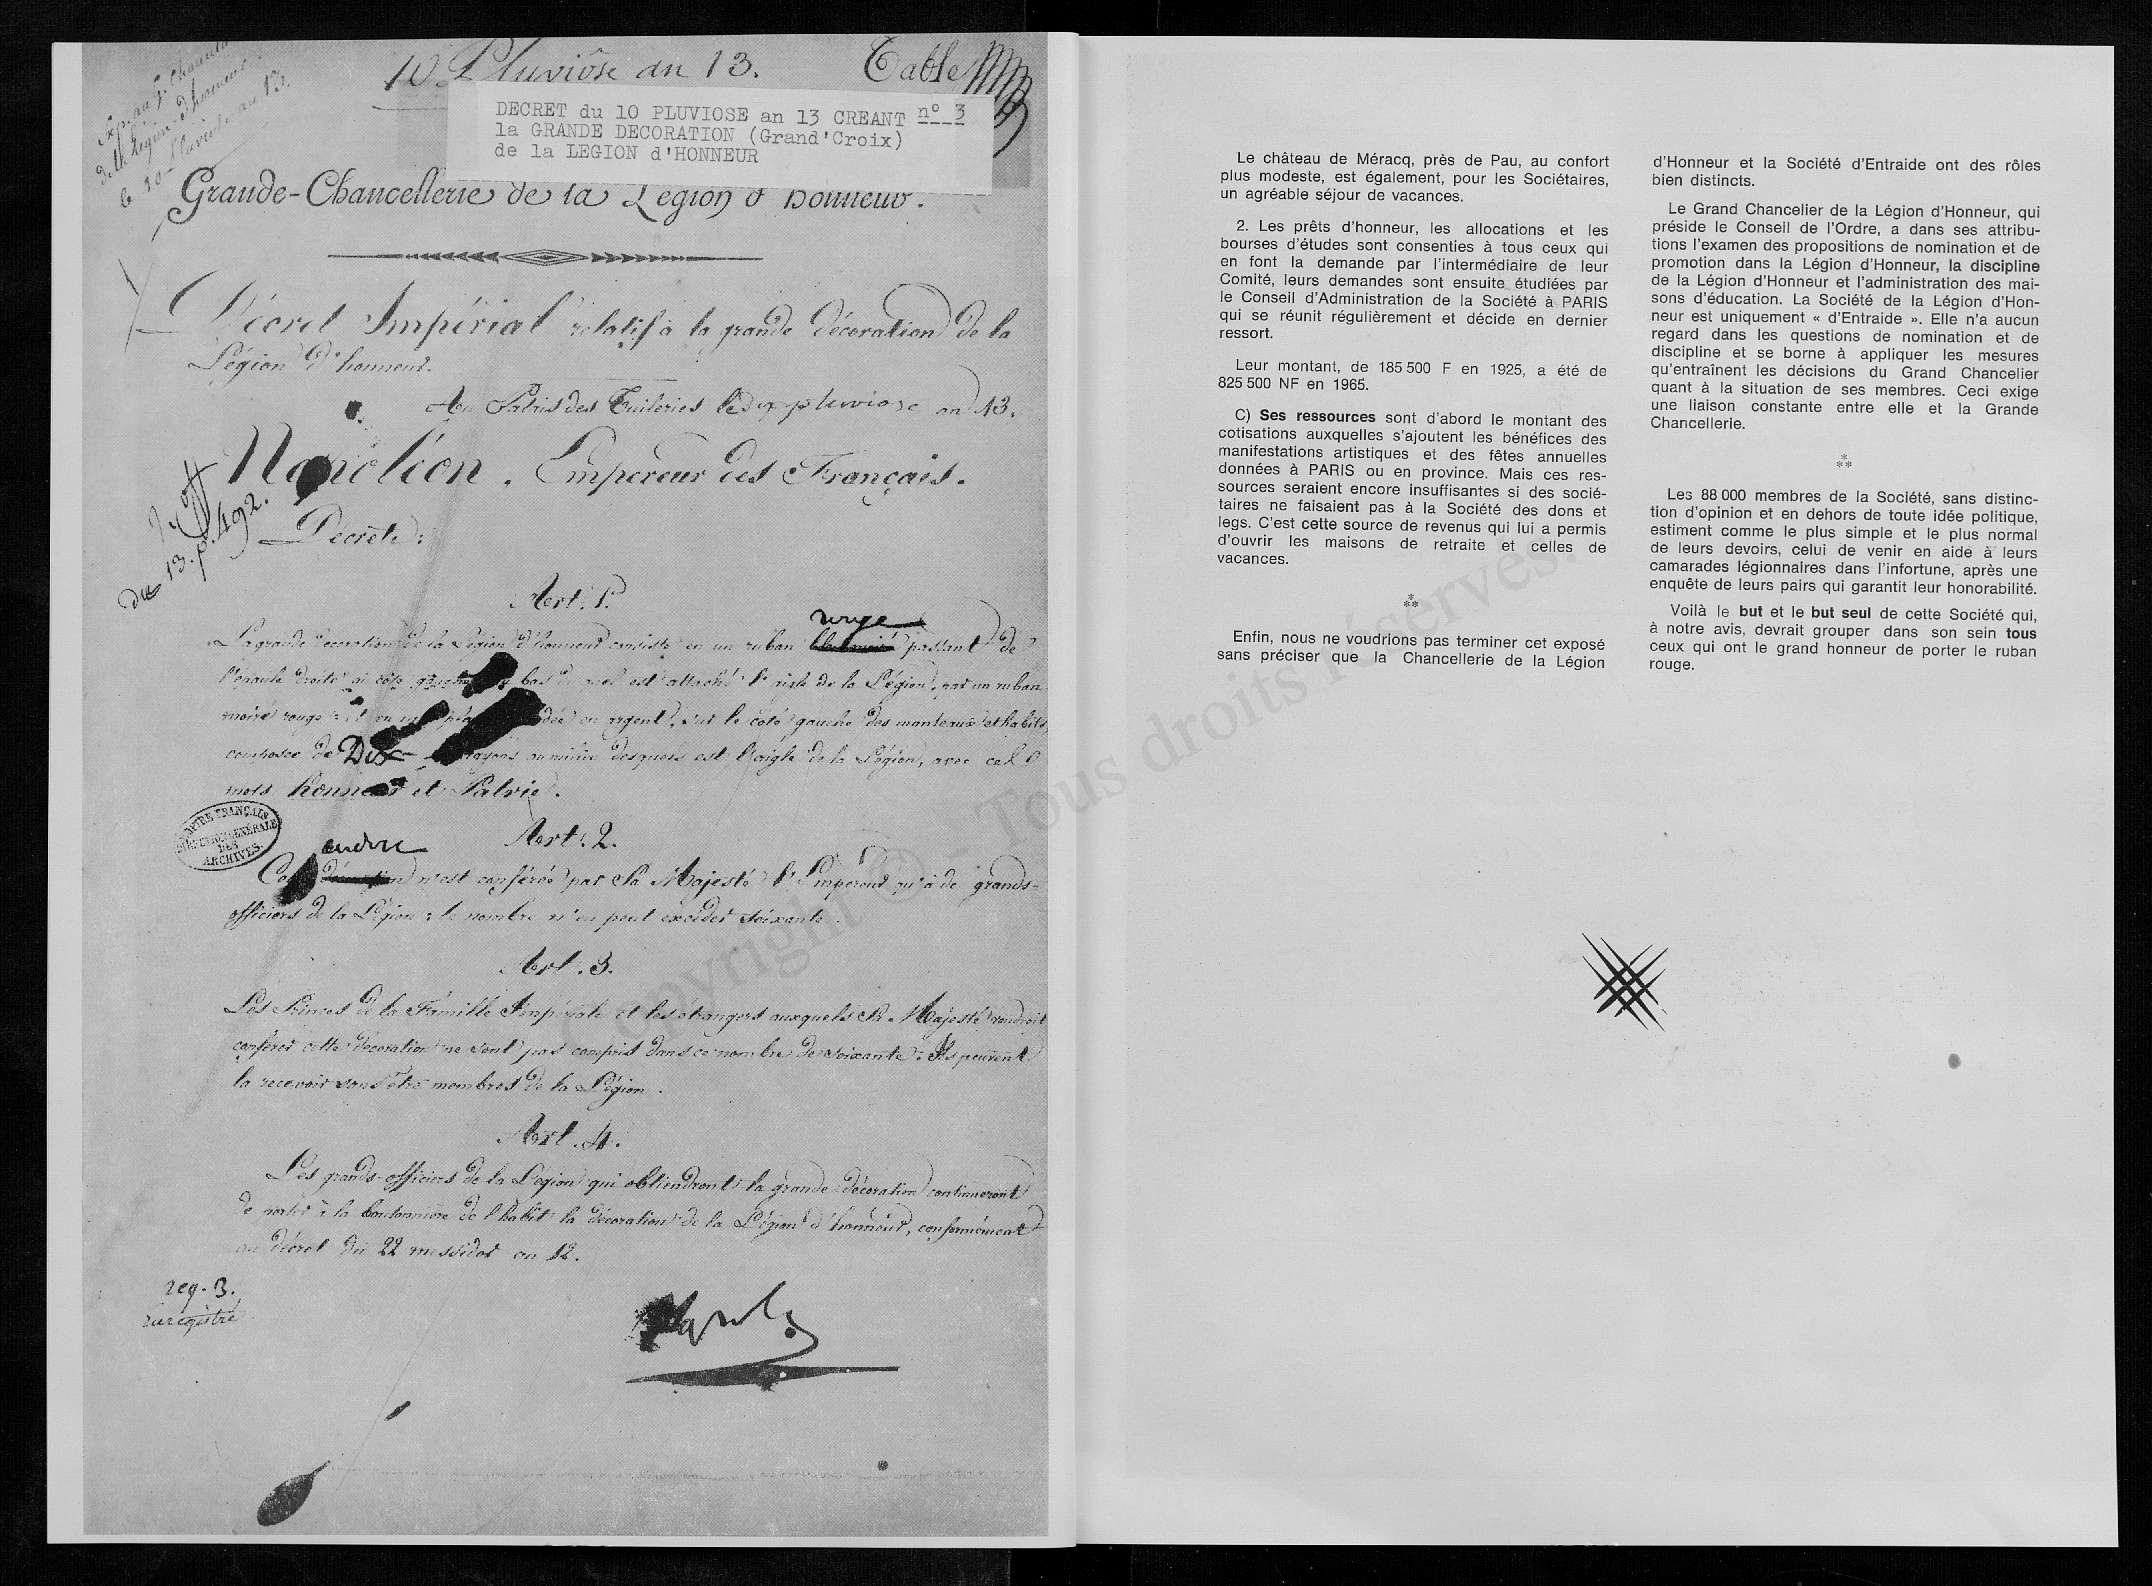 10 Pluviôse an 13. Table
DECRET du 10 PLUVIOSE an 13 CREANT nº 3
la GRANDE DECORATION (Grand'Croix)
de la LEGION d'HONNEUR
de la Légion d'honneur
le 10 Pluviose an 13.
Grande-Chancellerie de la Légion d'honneur.
Décret Impérial relatif à la grande décoration de la
Légion d'honneur.
Au Palais des Tuileries le dix pluviose an 13.
Napoléon, Empereur des Français.
du 13. p. 492.
Décrète :
Art. 1.
rouge
La grande décoration de la Légion d'honneur consiste en un ruban passant de
l'épaule droite au côté gauche bas du quel est attaché l'aigle de la Légion, par un ruban
moiré rouge et en une en argent, sur le côté gauche des manteaux et habits,
composée de Dix rayons au milieu desquels est l'aigle de la Légion, avec ces
mots honneur et Patrie.
EMPIRE FRANÇAIS
DES
ARCHIVES
Art. 2.
n'est conférée par Sa Majesté l'Empereur qu'à de grands-
officiers de la Légion : le nombre n'en peut excéder soixante.
Art. 3.
Les Princes de la Famille Impériale et les étrangers auxquels Sa Majesté voudroit
conférer cette décoration ne sont pas compris dans ce nombre de soixante : Ils peuvent
la recevoir sans être membres de la Légion.
Art. 4.
Les grands-officiers de la Légion qui obtiendront la grande décoration continueront
de porter à la boutonnière de l'habit la décoration de la Légion d'honneur, conformément
au décret du 22 messidor an 12.
reg. 3.
Enregistré
Le château de Méracq, près de Pau, au confort
plus modeste, est également, pour les Sociétaires,
un agréable séjour de vacances.
2. Les prêts d'honneur, les allocations et les
bourses d'études sont consenties à tous ceux qui
en font la demande par l'intermédiaire de leur
Comité, leurs demandes sont ensuite étudiées par
le Conseil d'Administration de la Société à PARIS
qui se réunit régulièrement et décide en dernier
ressort.
Leur montant, de 185 500 F en 1925, a été de
825 500 NF en 1965.
C) Ses ressources sont d'abord le montant des
cotisations auxquelles s'ajoutent les bénéfices des
manifestations artistiques et des fêtes annuelles
données à PARIS ou en province. Mais ces res-
sources seraient encore insuffisantes si des socié-
taires ne faisaient pas à la Société des dons et
legs. C'est cette source de revenus qui lui a permis
d'ouvrir les maisons de retraite et celles de
vacances.
Enfin, nous ne voudrions pas terminer cet exposé
sans préciser que la Chancellerie de la Légion
d'Honneur et la Société d'Entraide ont des rôles
bien distincts.
Le Grand Chancelier de la Légion d'Honneur, qui
préside le Conseil de l'Ordre, a dans ses attribu-
tions l'examen des propositions de nomination et de
promotion dans la Légion d'Honneur, la discipline
de la Légion d'Honneur et l'administration des mai-
sons d'éducation. La Société de la Légion d'Hon-
neur est uniquement « d'Entraide ». Elle n'a aucun
regard dans les questions de nomination et de
discipline et se borne à appliquer les mesures
qu'entraînent les décisions du Grand Chancelier
quant à la situation de ses membres. Ceci exige
une liaison constante entre elle et la Grande
Chancellerie.
Les 88 000 membres de la Société, sans distinc-
tion d'opinion et en dehors de toute idée politique,
estiment comme le plus simple et le plus normal
de leurs devoirs, celui de venir en aide à leurs
camarades légionnaires dans l'infortune, après une
enquête de leurs pairs qui garantit leur honorabilité.
Voilà le but et le but seul de cette Société qui,
à notre avis, devrait grouper dans son sein tous
ceux qui ont le grand honneur de porter le ruban
rouge.
Copyright © - Tous droits réservés.